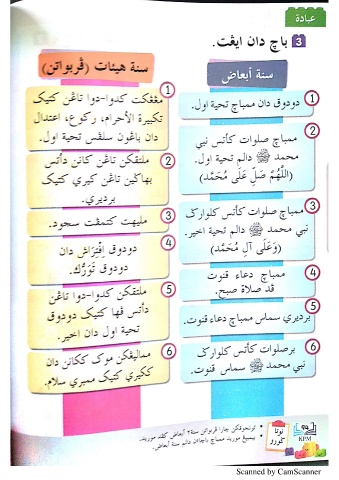 عبادة
3 باچ دان ايڠت.
سنة أبعاض
1 دودوق دان ممباچ تحية اول.
2 ممباچ صلوات كأتس نبي
محمد ﷺ دالم تحية اول.
(اللَّهُمَّ صَلِّ عَلَى مُحَمَّد)
3 ممباچ صلوات كأتس كلوارݢ
نبي محمد ﷺ دالم تحية اخير.
(وَعَلَى آلِ مُحَمَّد)
4 ممباچ دعاء قنوت
قد صلاة صبح.
5 برديري سماس ممباچ دعاء قنوت.
6 برصلوات كأتس كلوارݢ
نبي محمد ﷺ سماس قنوت.
سنة هيئات (ڤربواتن)
1 مڠڠكت كدوا-دوا تاڠن كتيك
تكبيرة الأحرام، ركوع، اعتدال
دان باڠون سلڤس تحية اول.
2 ملتقكن تاڠن كانن دأتس
بهاݢين تاڠن كيري كتيك
برديري.
3 مليهت كتمڤت سجود.
4 دودوق اِفْتِرَاش دان
دودوق تَوَرُّك.
5 ملتقكن كدوا-دوا تاڠن
دأتس ڤها كتيك دودوق
تحية اول دان اخير.
6 مماليڠكن موك ككانن دان
ككيري كتيك ممبري سلام.
نوتا
ݢورو
KPM
• تونجوقكن چارا ڤربواتن سنة٢ أبعاض كڤد موريد.
• ممباچ باچاءن دالم سنة أبعاض.
Scanned by CamScanner